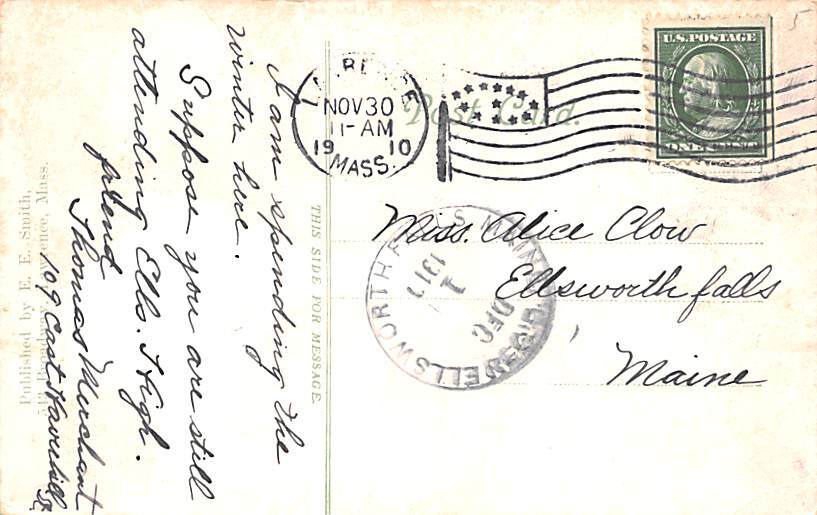 I am spending the
winter here.
Suppose you are still
attending Ells. High.
friend
Thomas Merchant
109 East Haverhill
St.
THIS SIDE FOR MESSAGE
Published by E. E. Smith,
Mass.
Post Card.
NOV 30
11-AM
1910
MASS.
U.S. POSTAGE
ONE CENT
5
Miss. Alice Clow
Ellsworth falls
Maine
ELLSWORTH FALLS MAINE
DEC
1